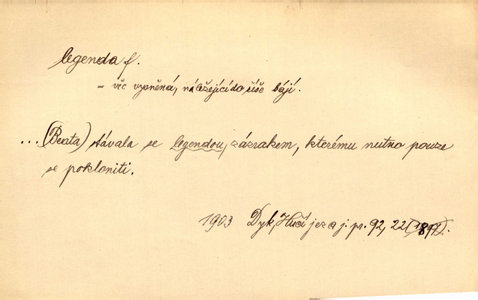 legenda f.
- věc vysněná, náležející do říše bájí.
...(Beata) stávala se legendou, zázrakem, kterému nutno pouze
se pokloniti.
1903 Dyk, Hučí jez a j. pr. 92, 22